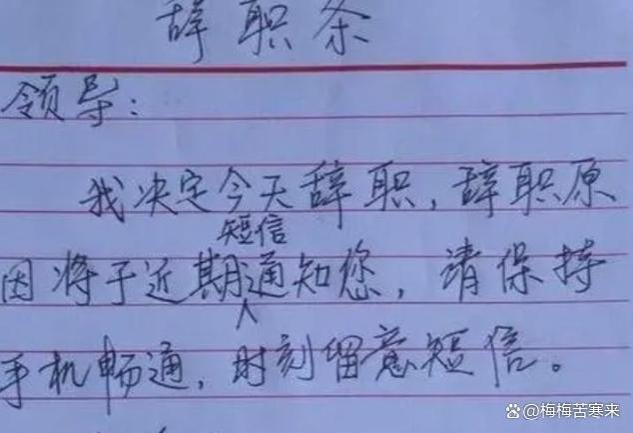 辞职条
领导：
我决定今天辞职，辞职原
短信
因将于近期通知您，请保持
手机畅通，时刻留意短信。
梅梅苦寒来